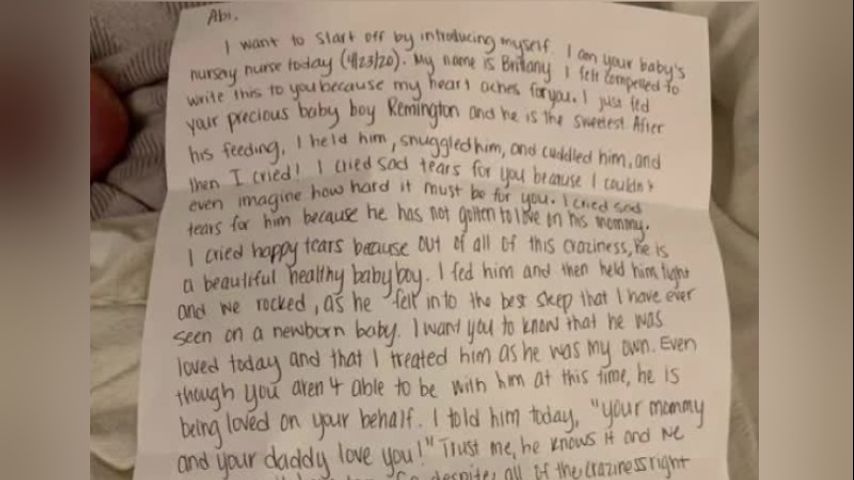 Abi.
I want to start off by introducing myself. I am your baby's
nursery nurse today (4/23/20). My name is Brittany. I felt compelled to
write this to you because my heart aches for you. I just fed
your precious baby boy Remington and he is the sweetest. After
his feeding, I held him, snuggled him, and cuddled him, and
then I cried! I cried sad tears for you because I couldn't
even imagine how hard it must be for you. I cried sad
tears for him because he has not gotten to love on his mommy.
I cried happy tears because out of all of this craziness, he is
a beautiful healthy baby boy. I fed him and then held him tight
and we rocked, as he fell into the best sleep that I have ever
seen on a newborn baby. I want you to know that he was
loved today and that I treated him as he was my own. Even
though you aren't able to be with him at this time, he is
being loved on your behalf. I told him today, "your mommy
and your daddy love you!" Trust me, he knows it and we
So despite, all of the craziness right